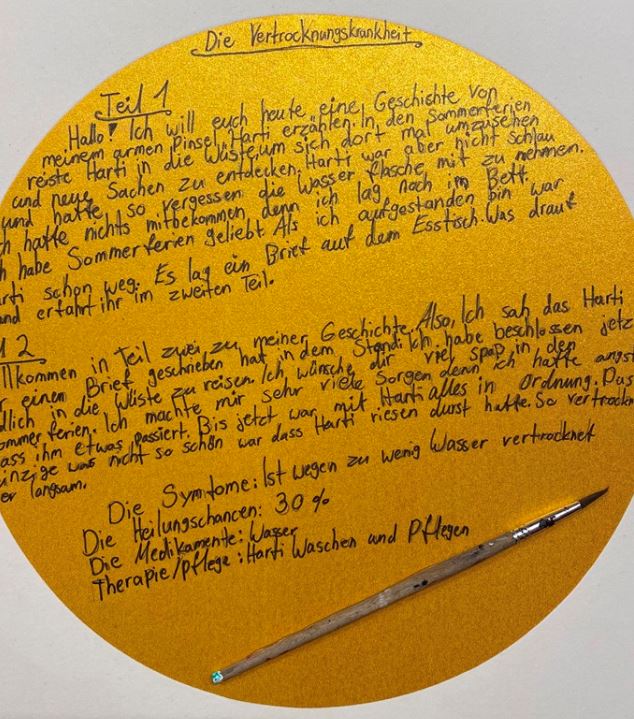 Die Vertrocknungskrankheit
Teil 1
Hallo! Ich will euch heute eine Geschichte von
meinem armen Pinsel Harti erzählen. In den Sommerferien
reiste Harti in die Wüste, um sich dort mal umzusehen
und neue Sachen zu entdecken. Harti war aber nicht schlau
und hatte so vergessen die Wasser flasche mit zu nehmen.
hatte nichts mitbekommen, denn ich lag noch im Bett.
habe Sommerferien geliebt. Als ich aufgestanden bin war
schon weg. Es lag ein Brief auf dem Esstisch. Was drauf
erfahrt ihr im zweiten Teil.
2
kommen in Teil zwei zu meiner Geschichte. Also, Ich sah das Harti
einen Brief geschrieben hat in dem Stand: Ich habe beschlossen jetzt
in die Wüste zu reisen. Ich wünsche dir viel spaß in den
ferien. Ich machte mir sehr viele Sorgen denn ich hatte angst
ihm etwas passiert. Bis jetzt war mit Harti alles in Ordnung. Das
was nicht so schön war dass Harti riesen durst hatte. So
er langsam.
Die Symtome: Ist wegen zu wenig Wasser vertrocknet
Die Heilungschancen: 30 %
Die Medikamente: Wasser
Therapie/Pflege: Harti Waschen und Pflegen